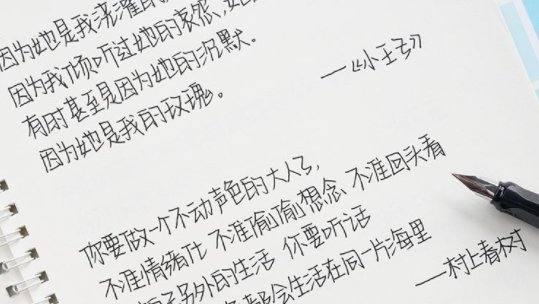 因为她是我浇灌的
因为我倾听过她的哀怨,
有时甚至是因为她的沉默。
因为她是我的玫瑰。
——《小王子》
你要做一个不动声色的大人了,
不准情绪化 不准偷偷想念 不准回头看
另外的生活 你要听话
会生活在同一片海里
——村上春树